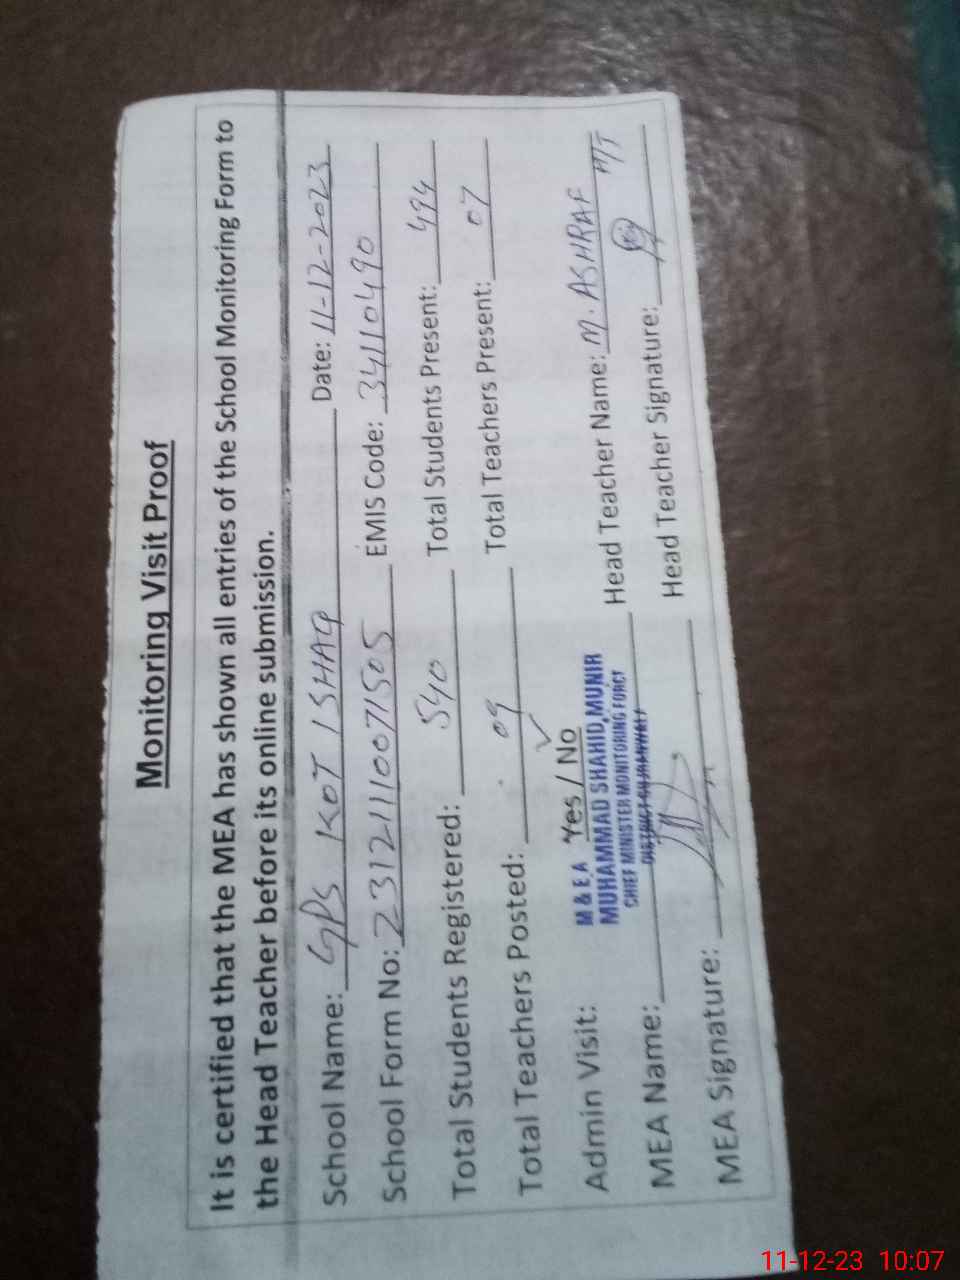 Monitoring Visit Proof
It is certified that the MEA has shown all entries of the School Monitoring Form to
the Head Teacher before its online submission.
School Name: GPS KOT ISHAQ Date: 11-12-2023
School Form No: 231211110071505 EMIS Code: 34110490
Total Students Registered: 540 Total Students Present: 494
Total Teachers Posted: 09 Total Teachers Present: 07
Admin Visit: Yes / No
M & E A
MUHAMMAD SHAHID MUNIR
CHIEF MINISTER MONITORING FORCE
DISTRICT GUJRANWALA
MEA Name: Head Teacher Name: M. ASHRAF
MEA Signature: Head Teacher Signature:
11-12-23 10:07